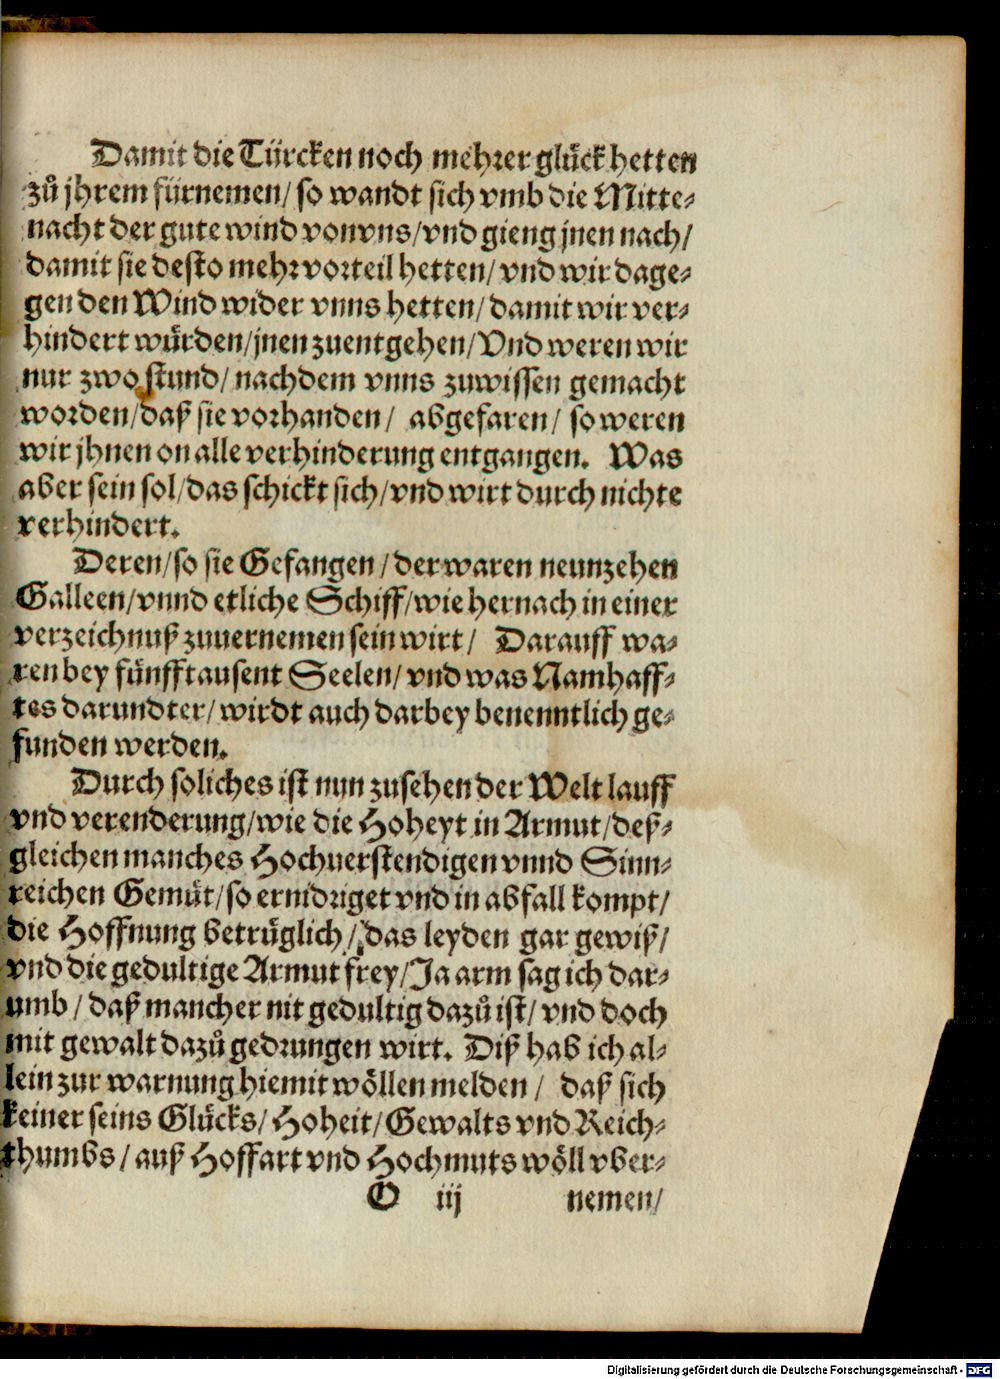 Damit die Türcken noch mehrer glück hetten
zů jhrem fürnemen/ so wandt sich vmb die Mitte-
nacht der gute wind von vns/ vnd gieng jnen nach/
damit sie desto mehr vorteil hetten/ vnd wir dage-
gen den Wind wider vnns hetten/ damit wir ver-
hindert würden/ jnen zuentgehen/ Vnd weren wir
nur zwo stund/ nachdem vnns zuwissen gemacht
worden/ daß sie vorhanden/ abgefaren/ so weren
wir jhnen on alle verhinderung entgangen. Was
aber sein sol/ das schickt sich/ vnd wirt durch nichte
verhindert.
Deren/ so sie Gefangen/ der waren neunzehen
Galleen/ vnnd etliche Schiff/ wie hernach in einer
verzeichnuß zuuernemen sein wirt/ Darauff wa-
ren bey fünfftausent Seelen/ vnd was Namhaff-
tes darundter/ wirdt auch darbey benenntlich ge-
funden werden.
Durch soliches ist nun zusehen der Welt lauff
vnd verenderung/ wie die Hoheyt in Armut/ deß-
gleichen manches Hochuerstendigen vnnd Sinn-
reichen Gemüt/ so ernidriget vnd in abfall kompt/
die Hoffnung betrüglich/ das leyden gar gewiß/
vnd die gedultige Armut frey/ Ja arm sag ich dar-
umb/ daß mancher nit gedultig dazů ist/ vnd doch
mit gewalt dazů gedrungen wirt. Diß hab ich al-
lein zur warnung hiemit wöllen melden/ daß sich
keiner seins Glücks/ Hoheit/ Gewalts vnd Reich-
thumbs/ auß Hoffart vnd Hochmuts wöll vber-
O iij nemen/
Digitalisierung gefördert durch die Deutsche Forschungsgemeinschaft - DFG